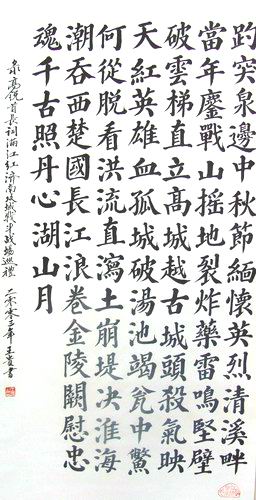 趵突泉邊中秋節緬懷英烈清溪畔
當年鏖戰山搖地裂炸藥雷鳴堅壁
破雲梯直立高城越古城頭殺氣映
天紅英雄血孤城破湯池竭瓮中鱉
何從脫看洪流直瀉土崩堤決淮海
潮吞西楚國長江浪卷金陵闕慰忠
魂千古照丹心湖山月
彔高銳首長詞滿江紅濟南攻城戰战場巡禮二零零三年王書